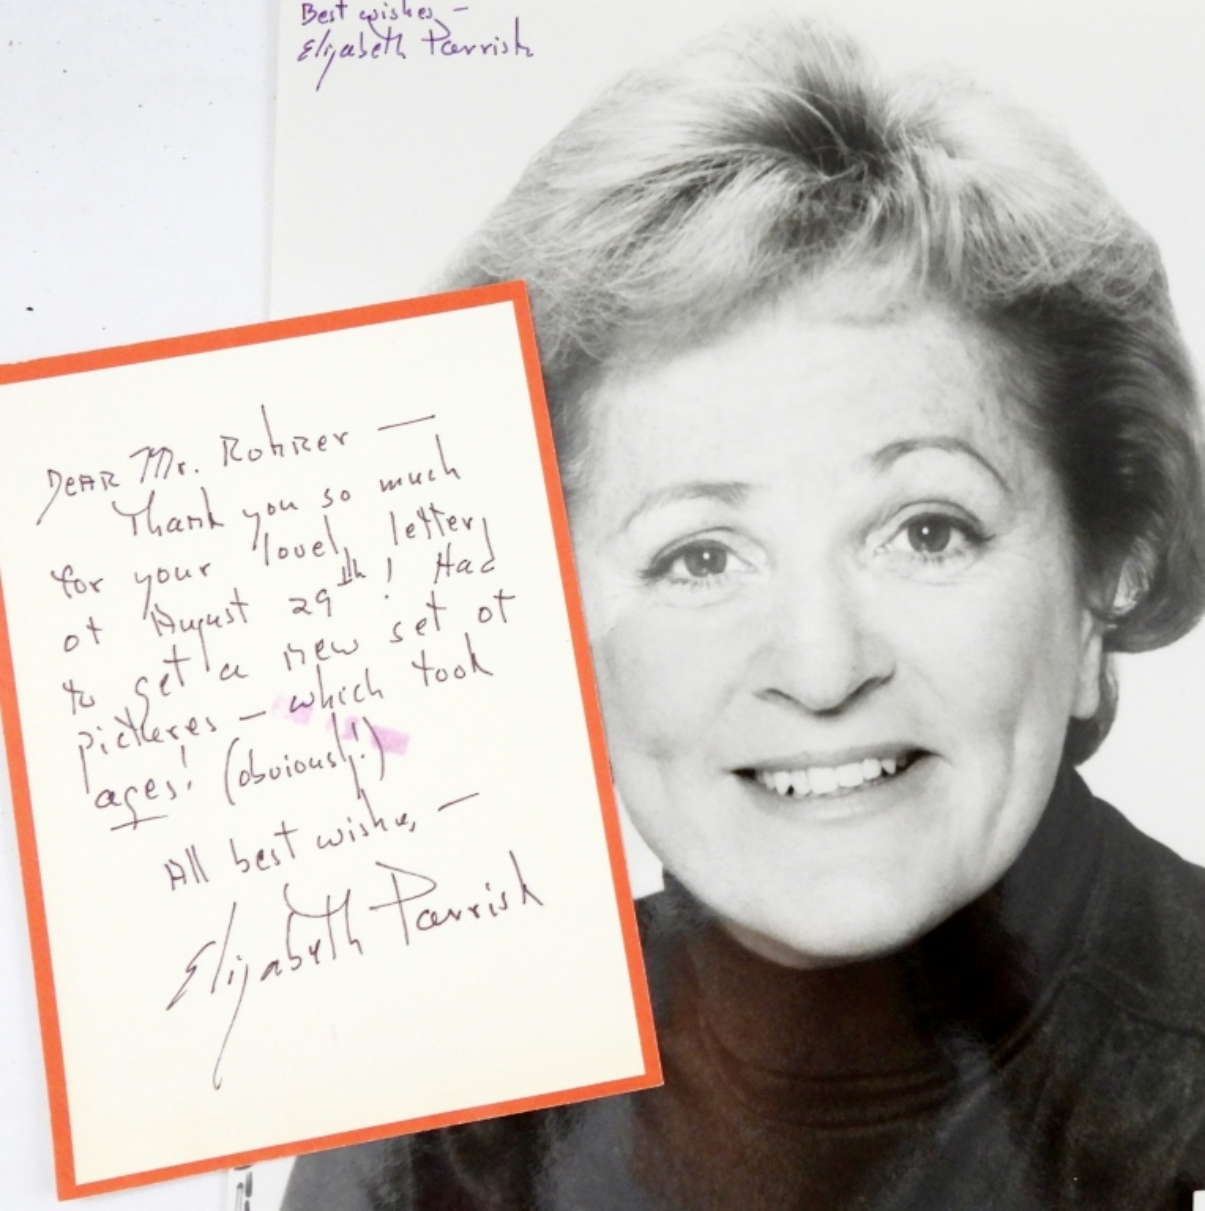 Best wishes –
Elizabeth Parrish
Dear Mr. Rohrer —
Thank you so much
for your lovely letter
of August 29th! Had
to get a new set of
pictures – which took
ages! (obviously!)
All best wishes, —
Elizabeth Parrish